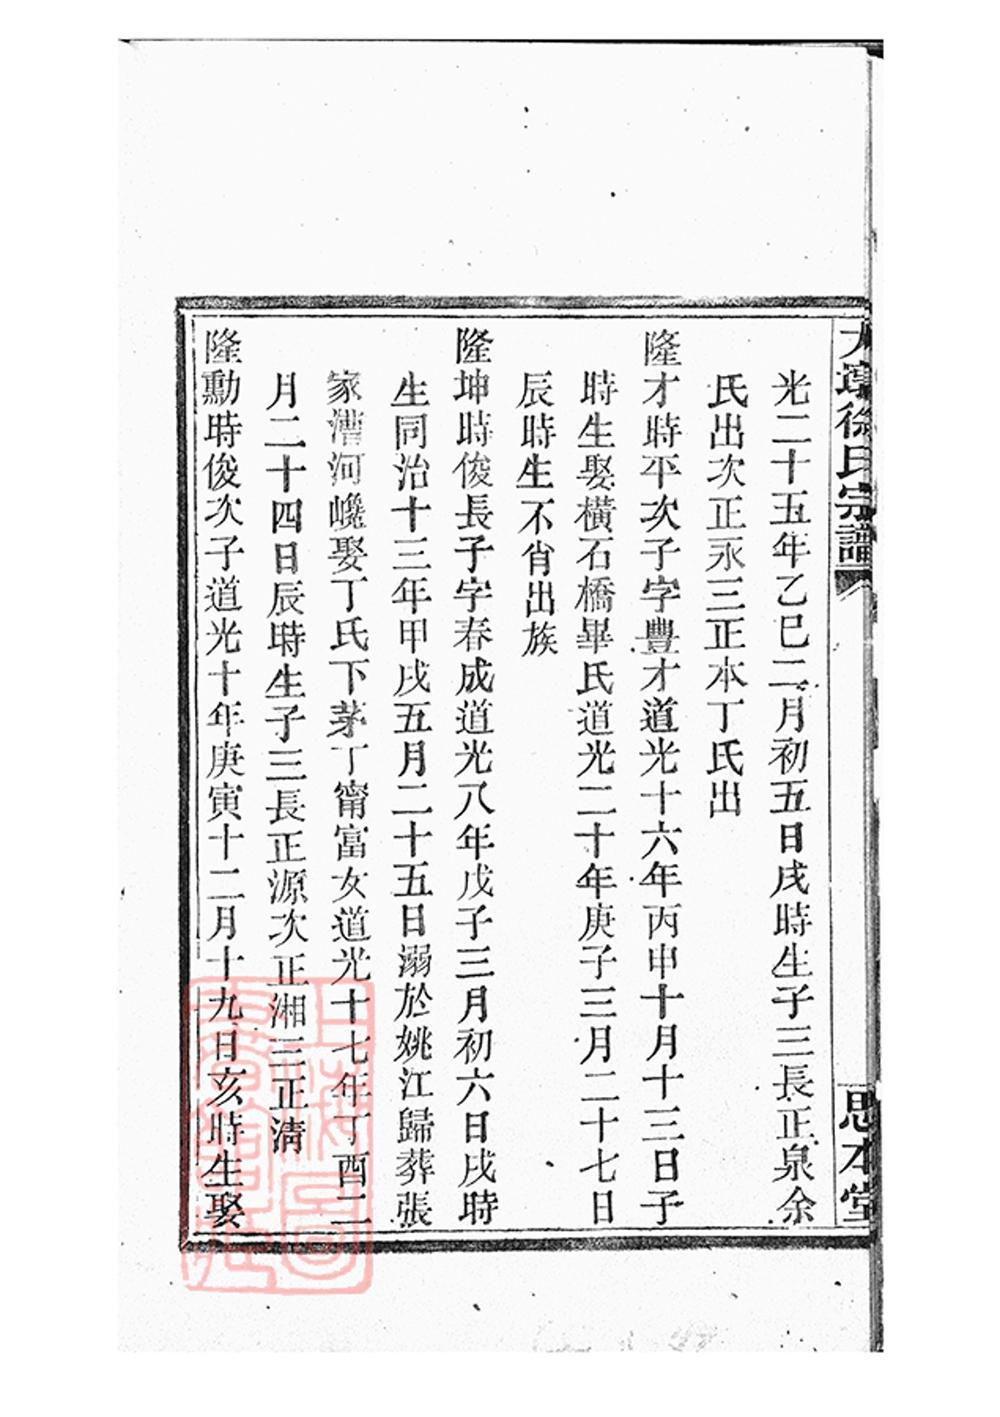 徐氏宗譜
思本堂
光二十五年乙巳二月初五日戌時生子三長正泉余
氏出次正永三正本丁氏出
隆才時平次子字豐才道光十六年丙申十月十三日子
時生娶橫石橋畢氏道光二十年庚子三月二十七日
辰時生不肖出族
隆坤時俊長子字春成道光八年戊子三月初六日戌時
生同治十三年甲戌五月二十五日溺於姚江歸葬張
家漕河巉娶丁氏下茅丁甯富女道光十七年丁酉二
月二十四日辰時生子三長正源次正湘三正清
隆勳時俊次子道光十年庚寅十二月十九日亥時生娶
上海圖書館藏